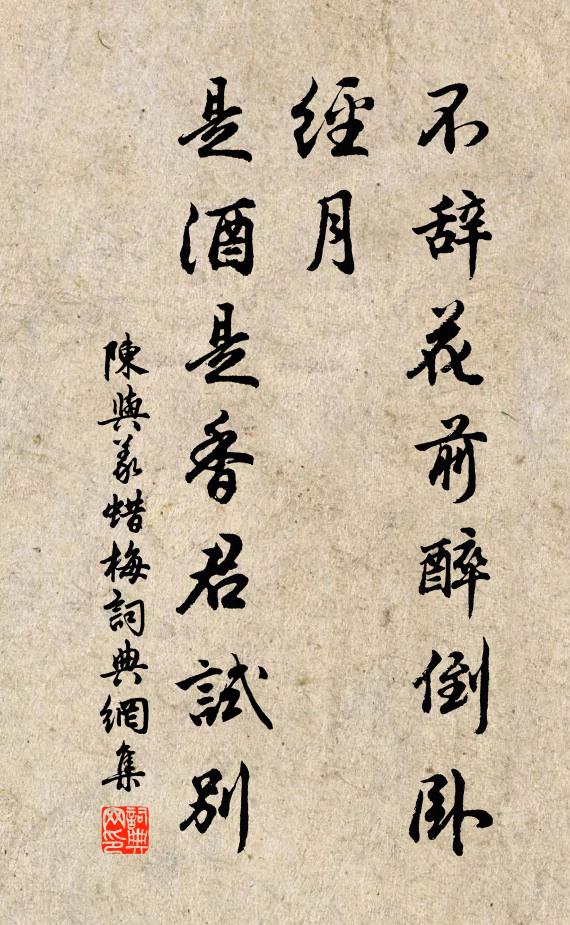 不辞花前醉倒卧
經月
是酒是香君試別
陳與義蜡梅詞典網集
詞典
网印